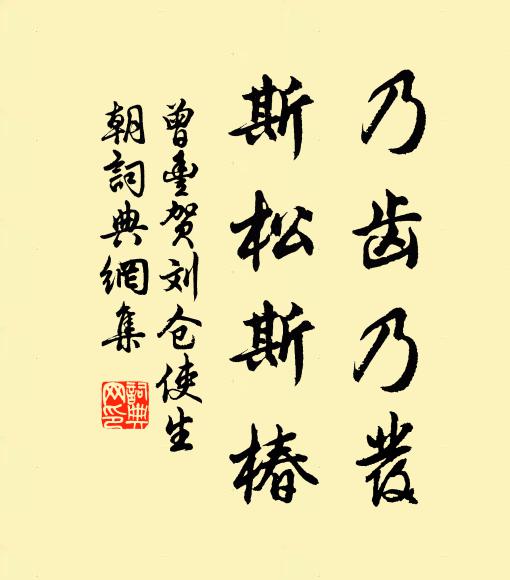 乃齿乃发
斯松斯椿
曾丰贺刘仓使生
朝詞典網集
詞典網印